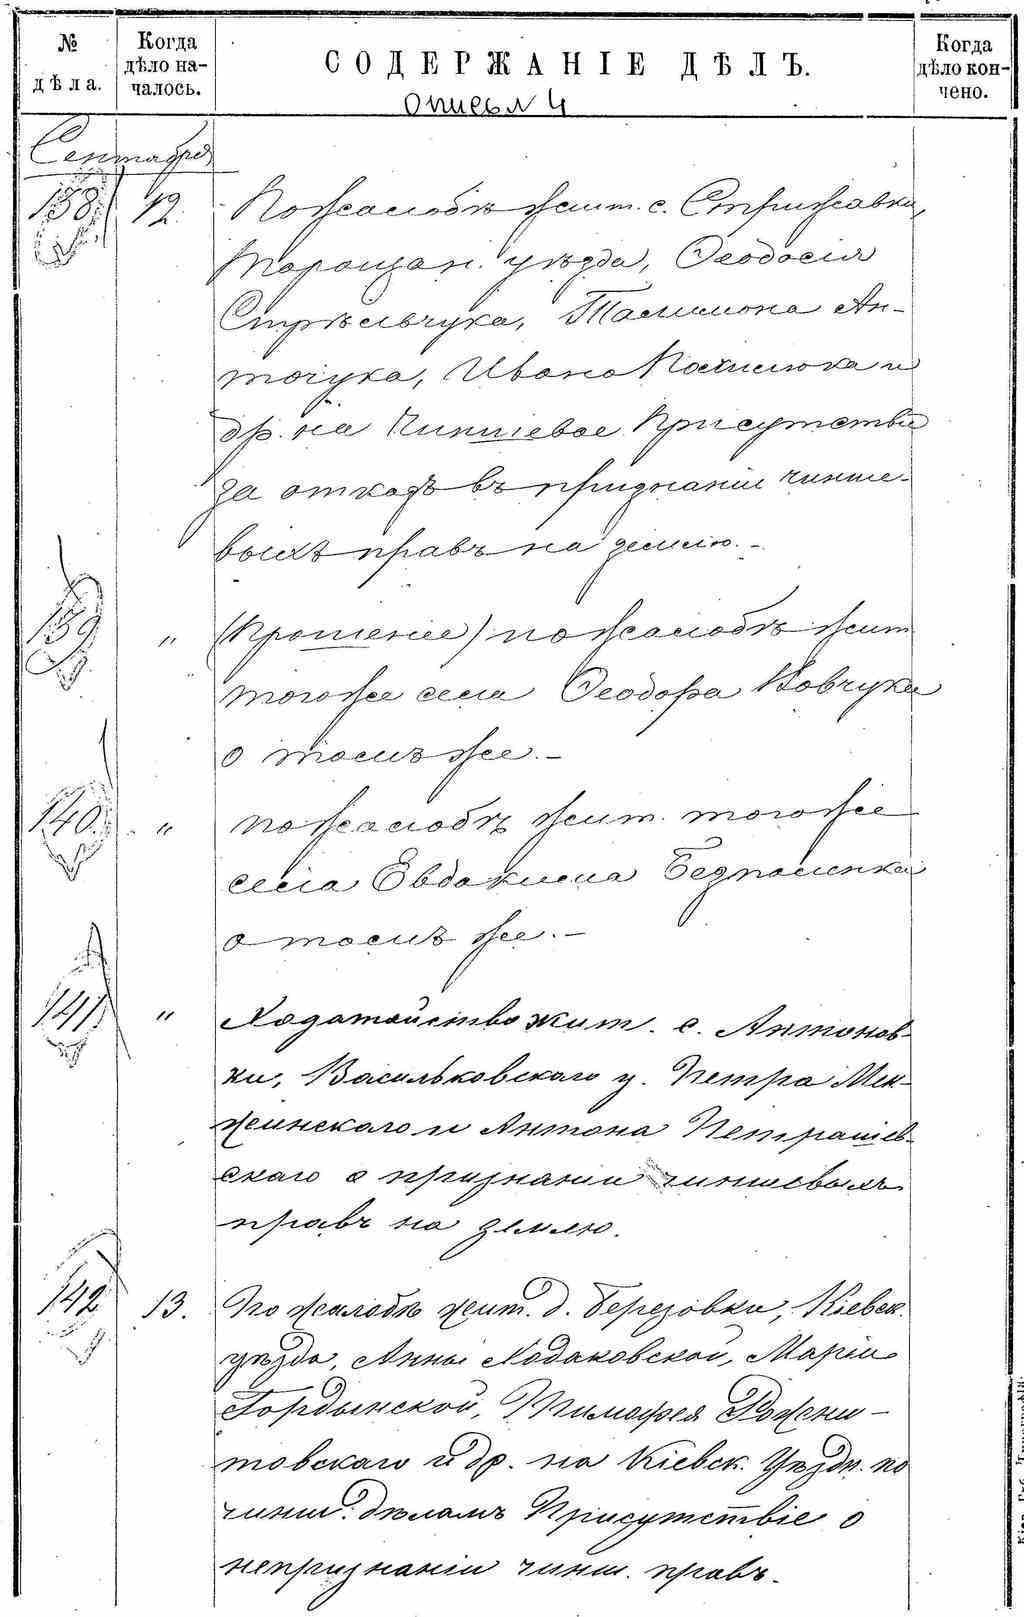 № дѣла.
Когда дѣло началось.
СОДЕРЖАНІЕ ДѢЛЪ.
Когда дѣло кончено.
Описъ 4
Сентября
138 12. По жалобѣ жит. с. Стрижавки,
Таращан. уѣзда, Ѳеодосія
Стрѣльчука, Ан-
точука, Ивана и
др. на Чиншевое Присутствіе
за отказъ въ признаніи чинше-
выхъ правъ на землю.-
139 " (Прошеніе) по жалобѣ жит.
того же села Ѳеодора Вовчука
о томъ же.-
140. " по жалобѣ жит. того же
села Евдокима
о томъ же.-
141 " Ходатайство жит. с. Антонов-
ки, Васильковскаго у. Петра Мен-
жинскаго и Антона Петрашев-
скаго о признании чиншевыхъ
правъ на землю.
142 13. По жалобѣ жит. д. Березовки, Кіевск.
уѣзда, Анны Ходаковской, Маріи
Гордынской, Тимофея
и др. на Кіевск. Уѣздн. по
чинш. дѣламъ Присутствіе о
непризнаніи чинш. правъ.